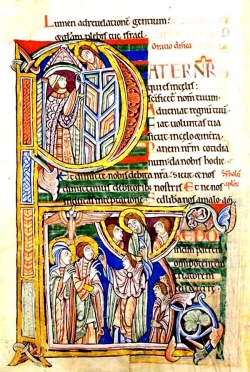 Lumen adreuelationē gentium:
& gloriam plebis tue israel.
Oratio dn̄ica
PATER NR̄
qui es in celis:
scificet̄ nomen tuum.
Adueniat regnū tuū
Fiat uoluntas tua
sicut in celo & in terra
Panem nr̄m cotidia
num da nobis hodie
Et dimitte nobis debita nr̄a: sicut & nos
dimittimus debitoribus nostris Et ne nos
inducas in temptatione sed libera nos a malo
CREDO
in deum patrem
omnipotentem
creatorem